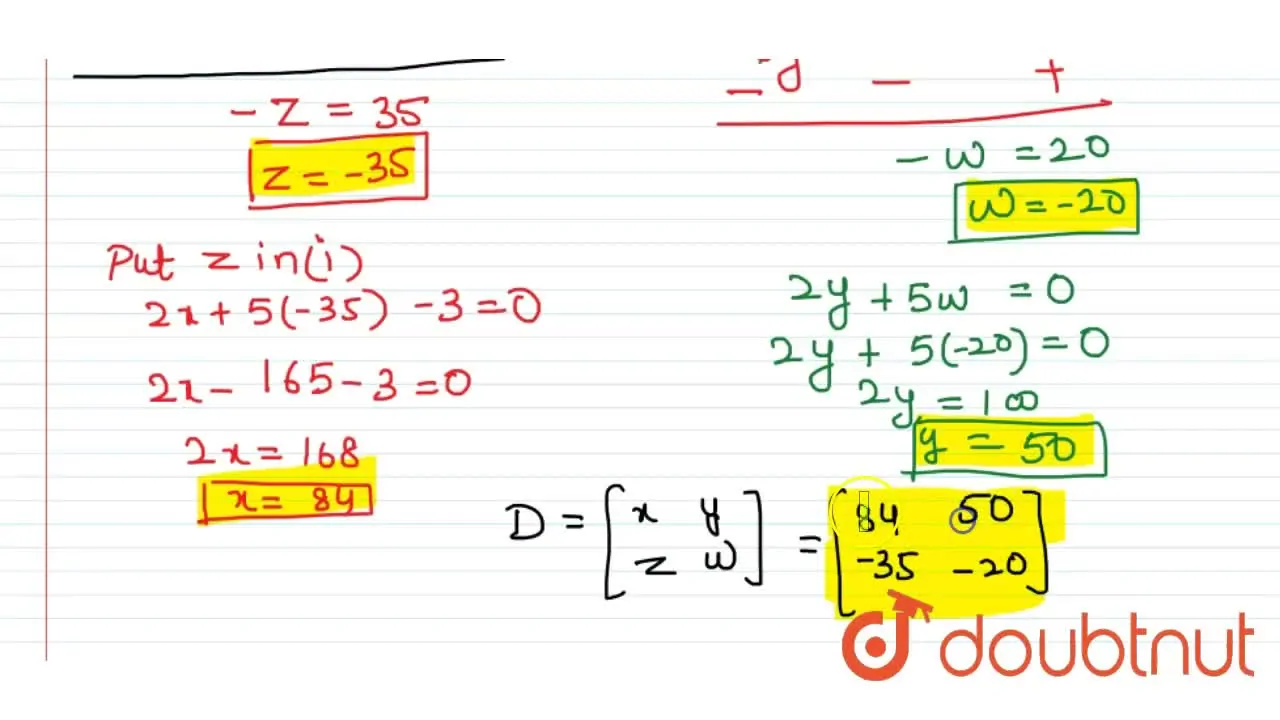 - z = 35
z = -35
Put z in (i)
2x + 5(-35) - 3 = 0
2x - 165 - 3 = 0
2x = 168
x = 84
- +
- w = 20
w = -20
2y + 5w = 0
2y + 5(-20) = 0
2y = 100
y = 50
D = [x y
z w] = [84 50
-35 -20]
doubtnut